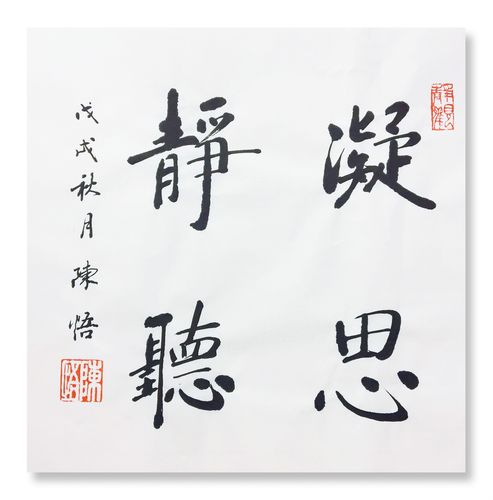 凝思
靜聽
戊戌秋月陳悟
陳悟